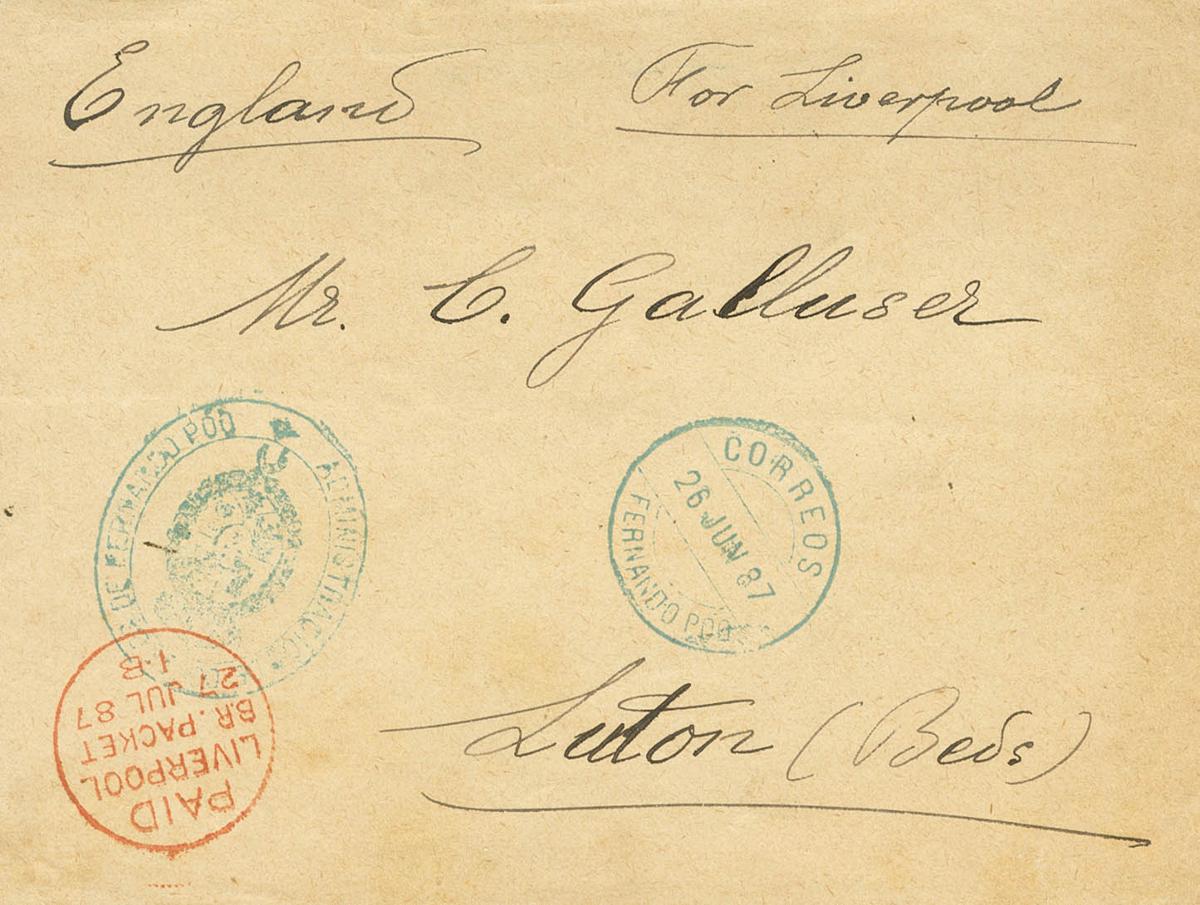 England
For Liverpool
Mr. C. Galluser
DE FERNANDO POO
CORREOS
26 JUN 87
FERNANDO POO
PAID
LIVERPOOL
BR. PACKET
27 JUL 87
Luton (Beds)